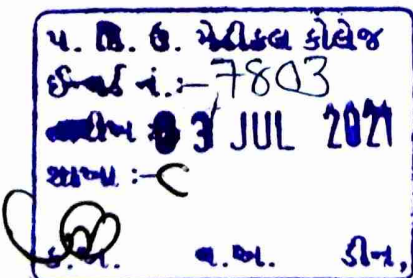 પ. ડિ. ઉ. મેડીકલ કોલેજ
ઈનવર્ડ નં.:- 7803
તારીખ : 03 JUL 2021
શાખા :-
ક.અ. વ.અ. ડીન,